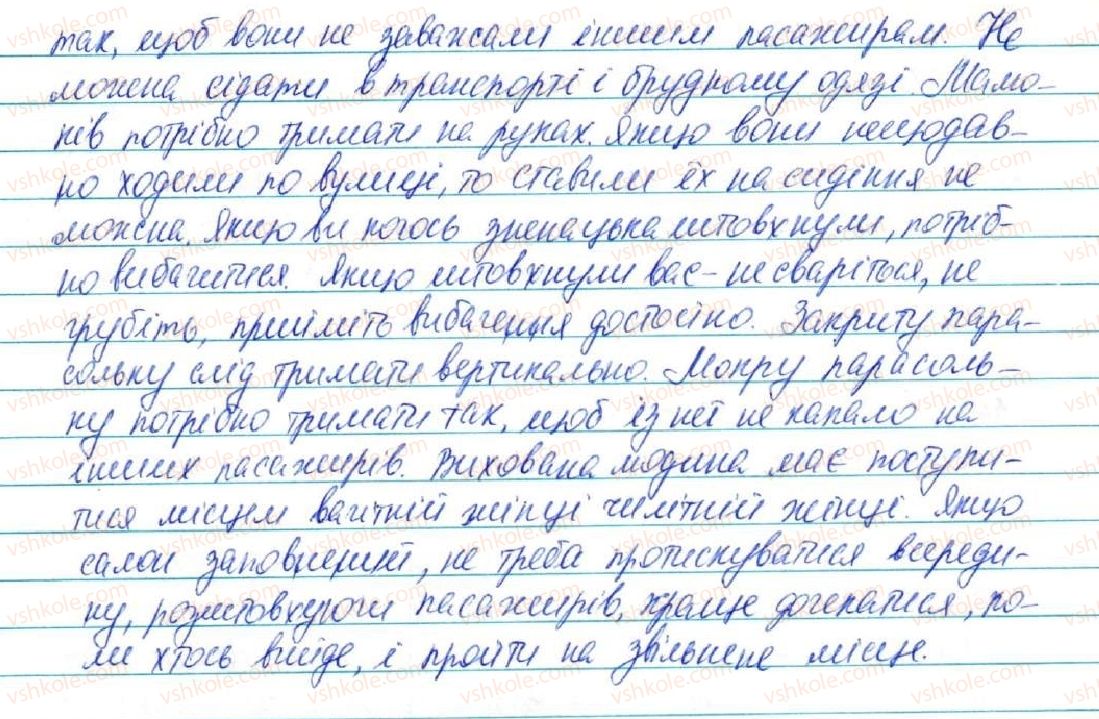 так, щоб вони не заважали іншим пасажирам. Не
можна сідати в транспорті і брудному одязі. Малю-
ків потрібно тримати на руках. Якщо вони нещодав-
но ходили по вулиці, то ставили їх на сидіння не
можна. Якщо ви когось зненацька штовхнули, потріб-
но вибачитися. Якщо штовхнули вас – не сваріться, не
грубіть, прийміть вибачення достойно. Закриту пара-
сольку слід тримати вертикально. Мокру парасоль-
ку потрібно тримати так, щоб із неї не капало на
інших пасажирів. Вихована людина має поступи-
тися місцем вагітній жінці чи літній жінці. Якщо
салон заповнений, не треба протискуватися всереди-
ну, розштовхуючи пасажирів, краще дочекатися, ко-
ли хтось вийде, і пройти на звільнене місце.
vshkole.com